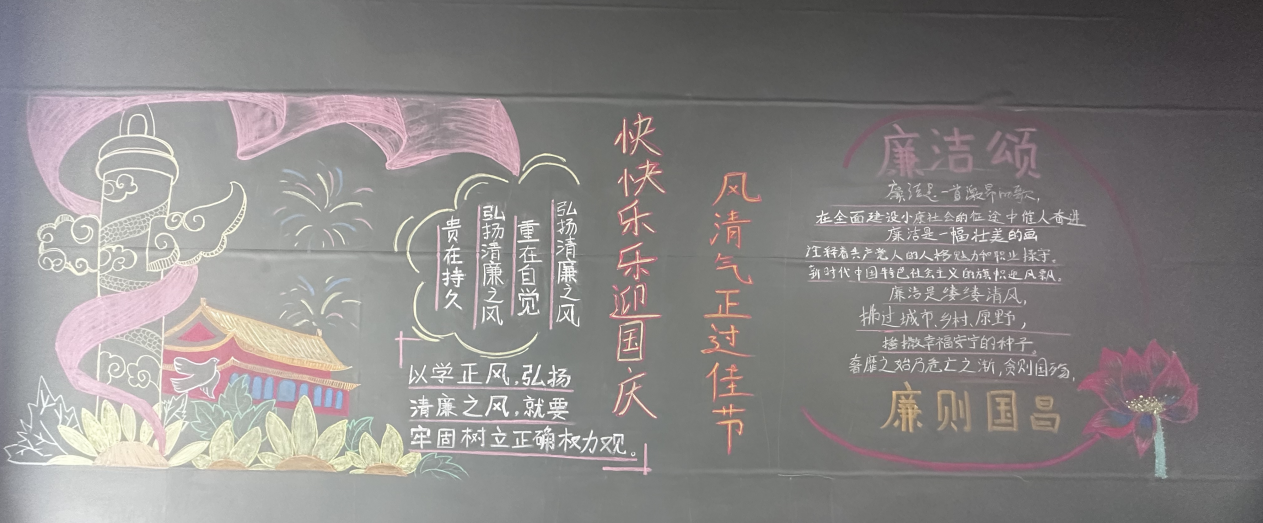 弘扬清廉之风
重在自觉
弘扬清廉之风
贵在持久
以学正风,弘扬
清廉之风,就要
牢固树立正确权力观。
快快乐乐迎国庆
风清气正过佳节
廉洁颂
廉洁是一首激昂的歌,
在全面建设小康社会的征途中催人奋进
廉洁是一幅壮美的画
注释着共产党人的人格魅力和职业操守。
新时代中国特色社会主义的旗帜迎风飘。
廉洁是缕缕清风,
拂过城市、乡村、原野,
播撒幸福安宁的种子。
奢靡之始乃危亡之渐,贪则国殇,
廉则国昌